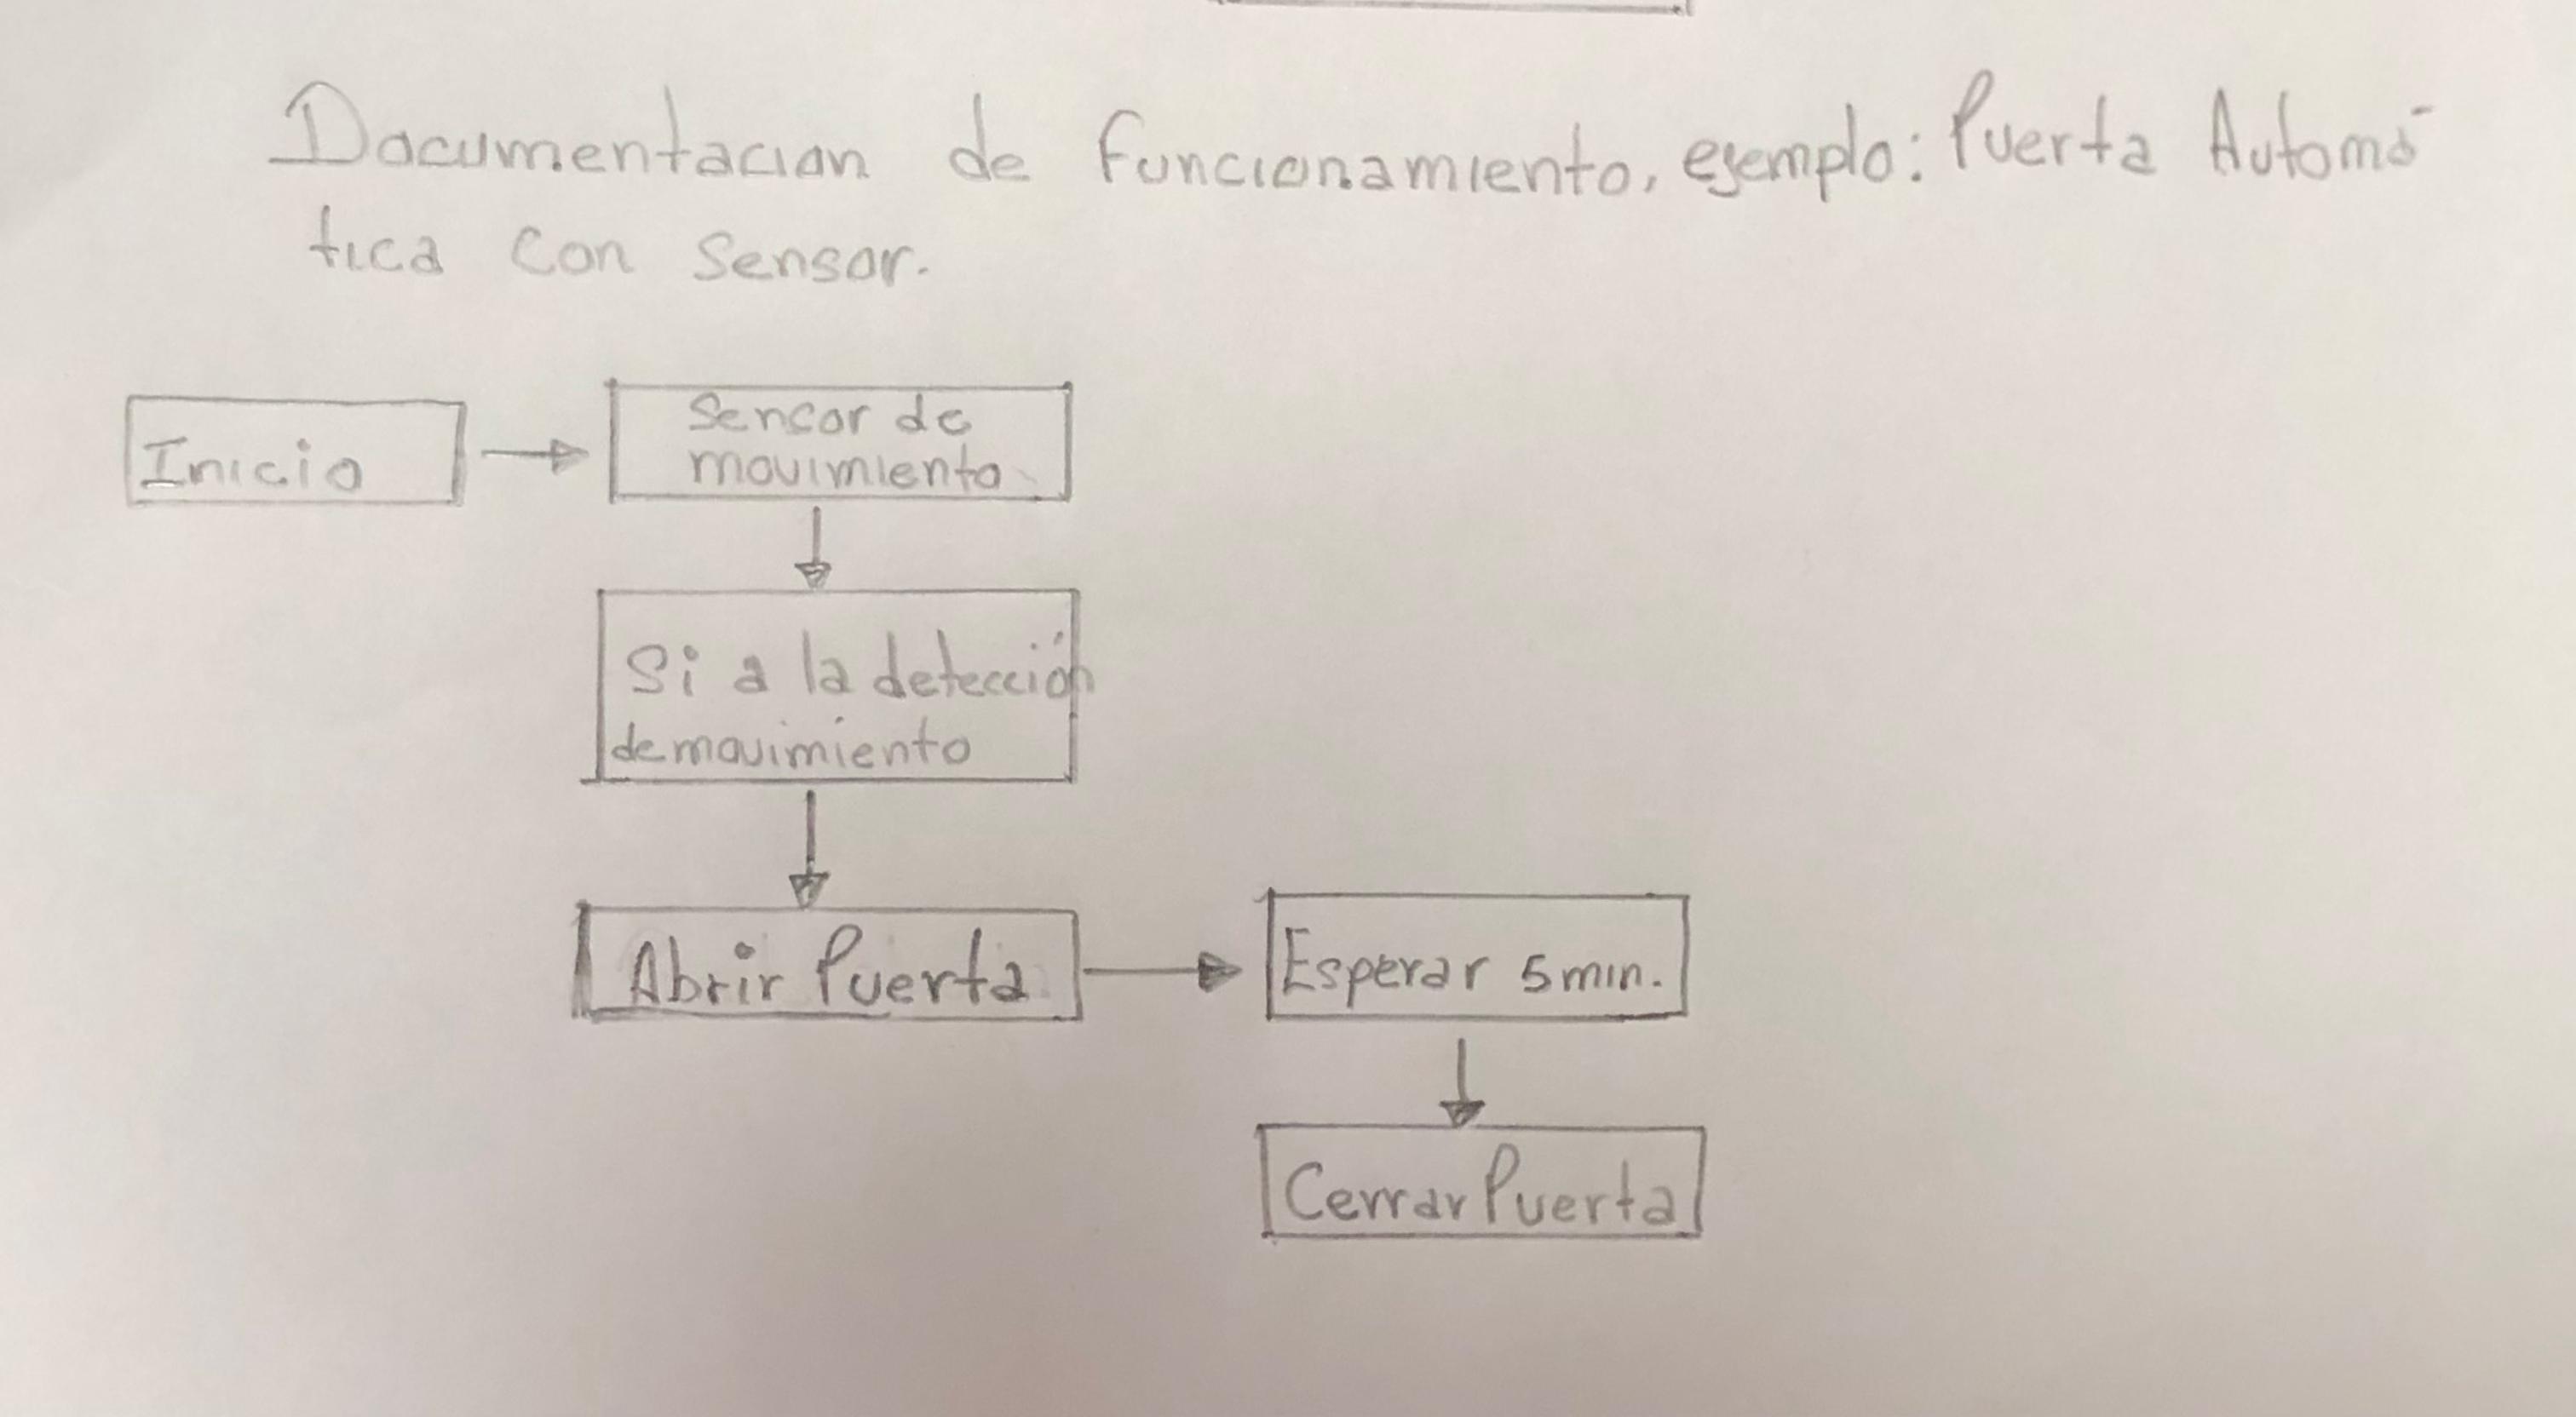 Documentacion de funcionamiento, ejemplo: Puerta Automá
tica con Sensor.
Inicio
Sensor de
movimiento
Si a la detección
de movimiento
Abrir Puerta
Esperar 5 min.
Cerrar Puerta